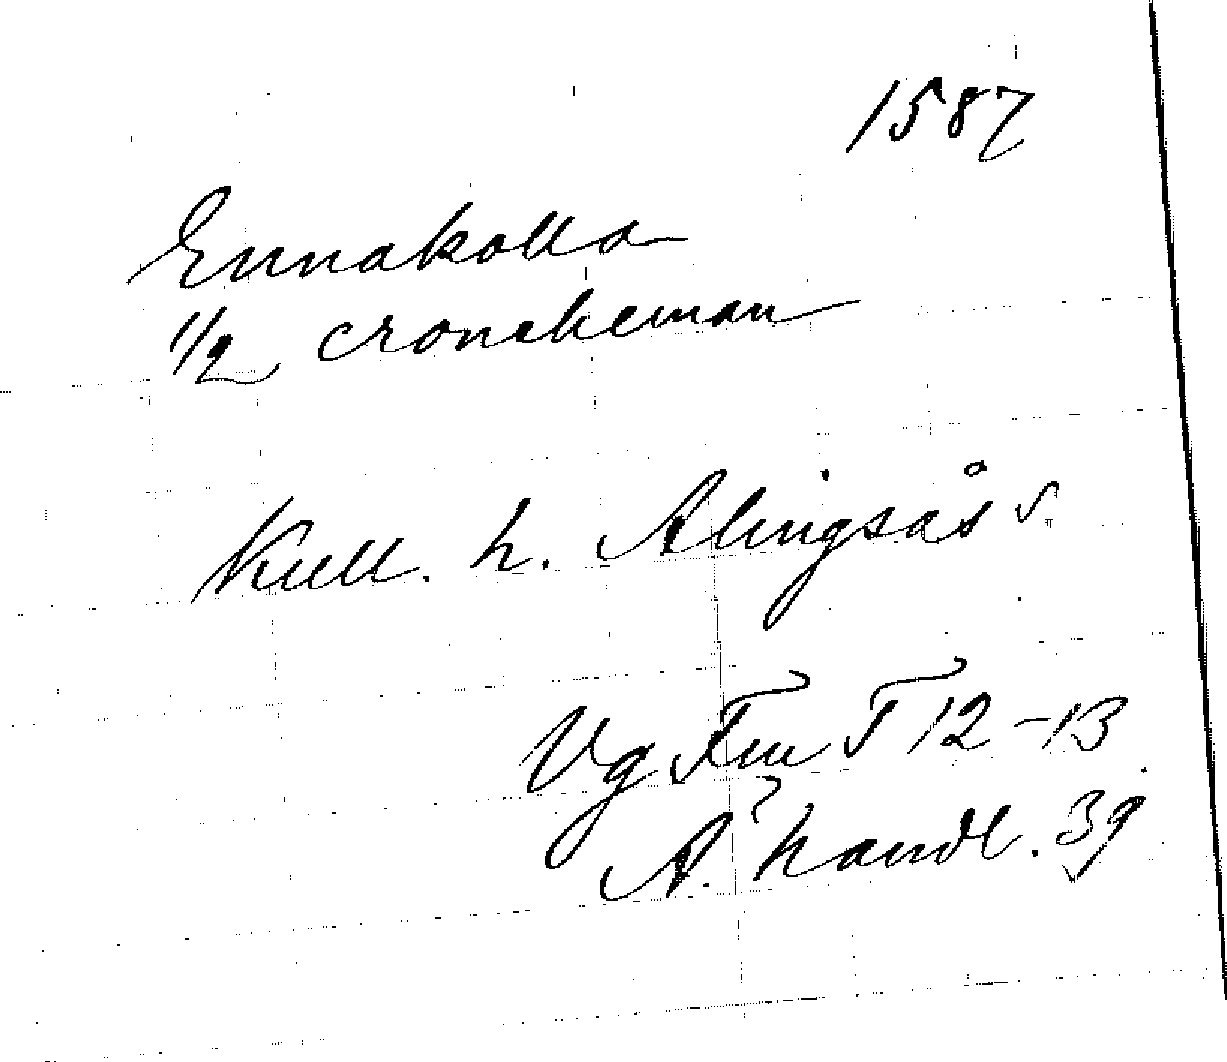 1587
Ennakolla
1/2 croneheman
Kull. h. Alingsås s.
Vg Fm T 12-13
A. handl. 39